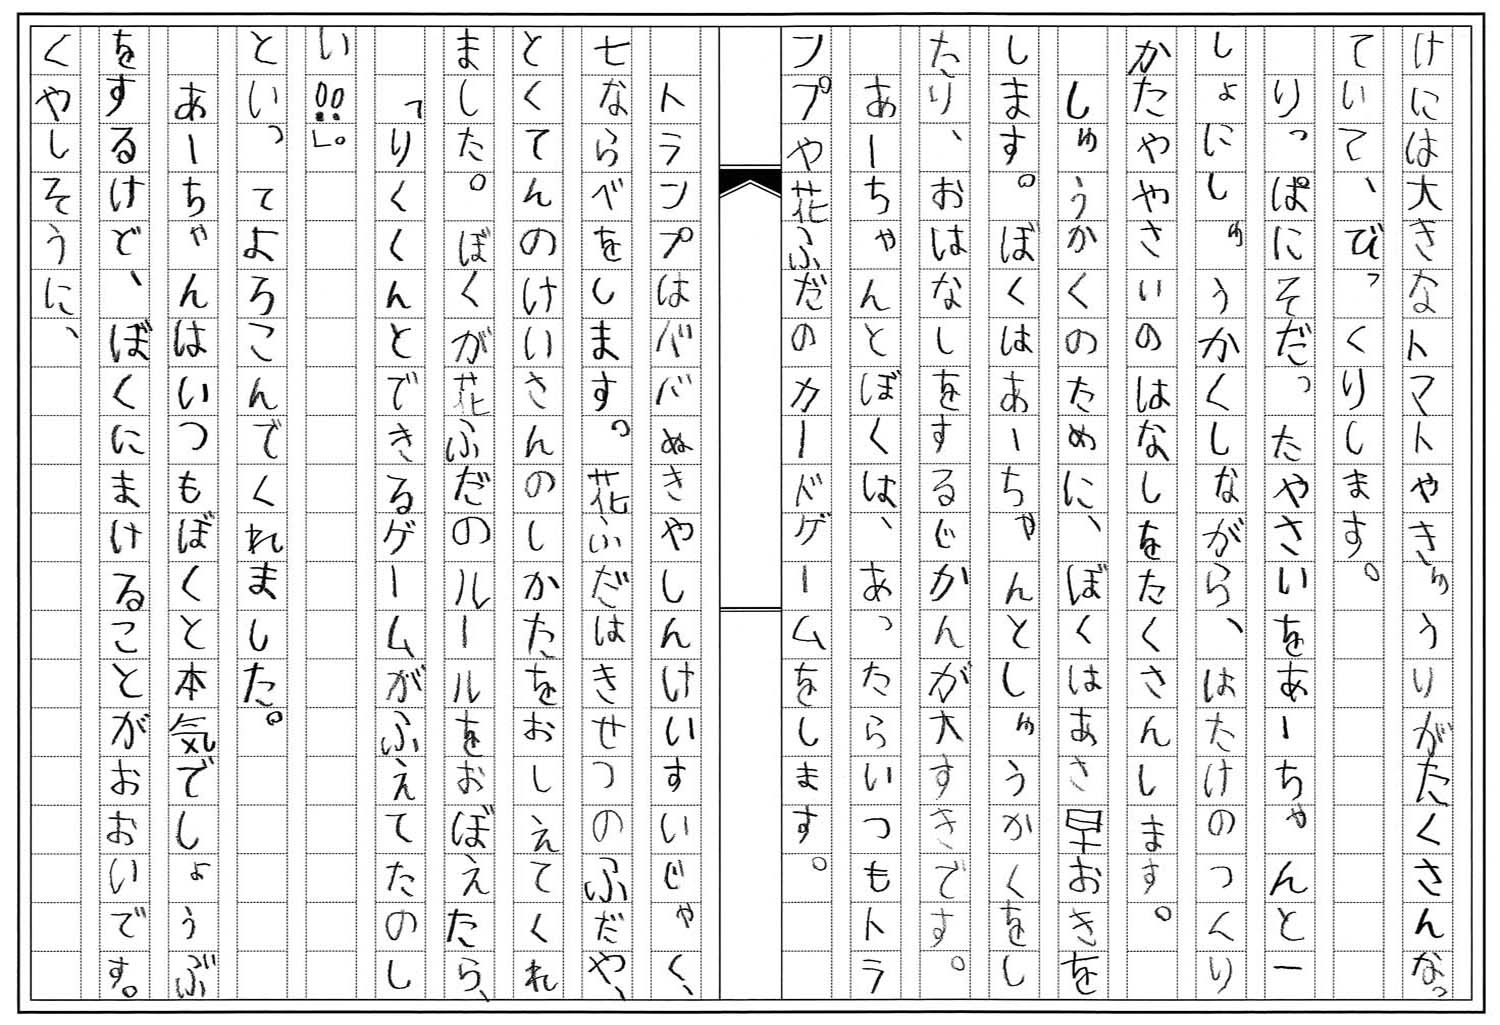 けには大きなトマトやきゅうりがたくさんなっ
ていて、びっくりします。
りっぱにそだったやさいをあーちゃんと一
しょにしゅうかくしながら、はたけのつくり
かたややさいのはなしをたくさんします。
しゅうかくのために、ぼくはあさ早おきを
します。ぼくはあーちゃんとしゅうかくをし
たり、おはなしをするじかんが大すきです。
あーちゃんとぼくは、あったらいつもトラ
ンプや花ふだのカードゲームをします。
トランプはババぬきやしんけいすいじゃく、
七ならべをします。花ふだはきせつのふだや、
とくてんのけいさんのしかたをおしえてくれ
ました。ぼくが花ふだのルールをおぼえたら、
「りくくんとできるゲームがふえてたのし
い!!」。
といってよろこんでくれました。
あーちゃんはいつもぼくと本気でしょうぶ
をするけど、ぼくにまけることがおおいです。
くやしそうに、